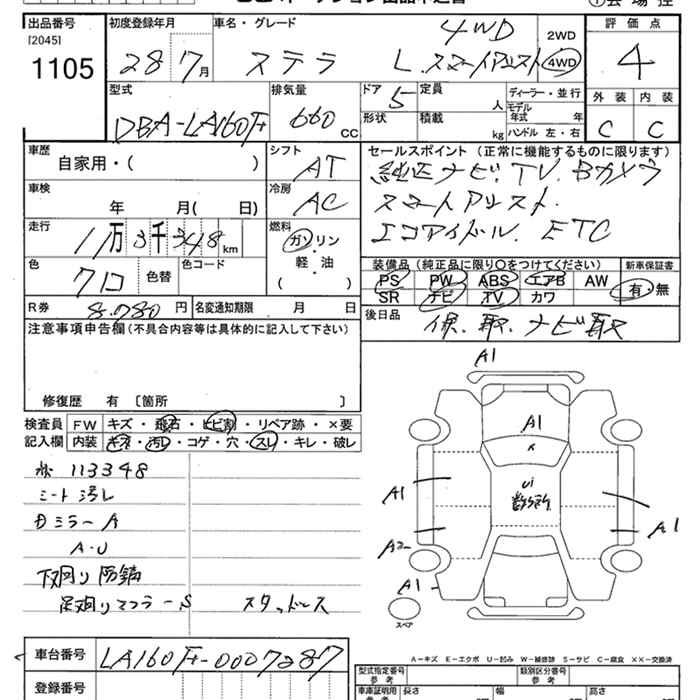 出品番号 初度登録年月 車名・グレード 評価点
[2045] 4WD 2WD
1105 28 7月 ステラ L.スマートアシスト 4WD 4
型式 排気量 ドア 定員 ディーラー・並行 外装 内装
DBA-LA160F 660 CC 5 人 モデル年式 年
形状 積載 kg ハンドル 左・右 C C
車歴 シフト セールスポイント (正常に機能するものに限ります)
自家用・( ) AT 純正ナビ.TV.Bカメラ
車検 冷房 スマートアシスト.
年 月( 日) AC エコアイドル. ETC
走行 燃料
11万3千348km ガソリン
軽・油
( )
色 色替 色コード 装備品 (純正品に限り○をつけてください) 新車保証書
クロ PS PW ABS エアB AW 有・無
SR ナビ TV カワ
R券 8.780円 名変通知期限 月 日 後日品
保.取.ナビ取
注意事項申告欄(不具合内容等は具体的に記入して下さい)
修復歴 有 〔箇所 〕
検査員 FW キズ・飛石・ヒビ割・リペア跡・×要
記入欄 内装 キズ・汚れ・コゲ・穴・スレ・キレ・破レ
113348
シート汚レ
ミラーA
A・U
下廻り 防錆
足廻りマフラーS スタッドレス
A1
A1
A1
U1
数ヶ所
A1
A2
A1
スペア
A-キズ E-エクボ U-凹み W-補修跡 S-サビ C-腐食 ××-交換済
車台番号 LA160F-0007287
登録番号
型式指定番号 参考 類別区分番号 参考
車庫証明用 参考 長さ 幅 高さ